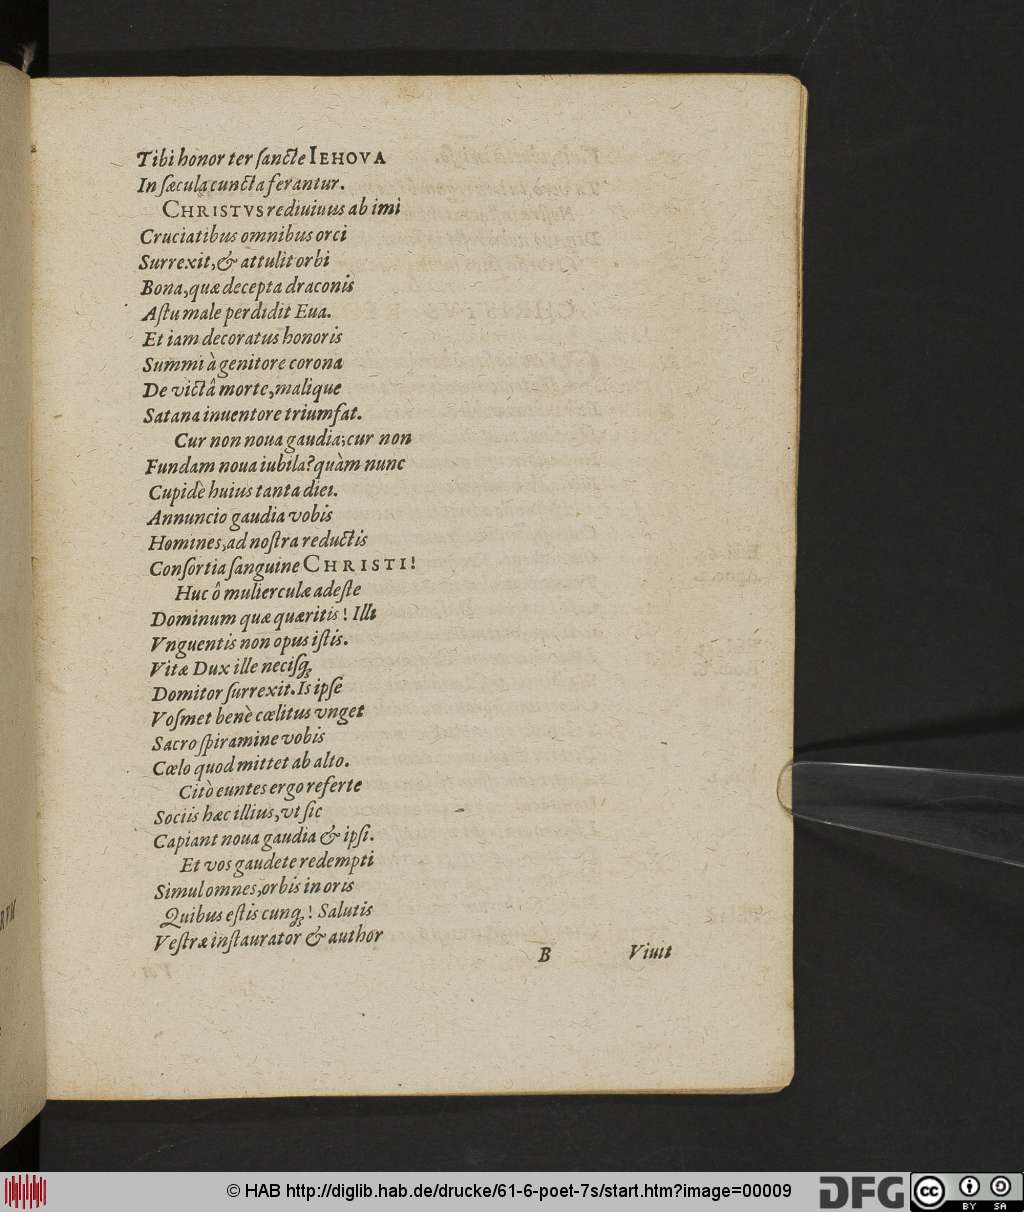 Tibi honor ter ſancte IEHOVA
In ſæcula cuncta ferantur.
CHRISTVS rediuiuus ab imi
Cruciatibus omnibus orci
Surrexit, & attulit orbi
Bona, quæ decepta draconis
Aſtu male perdidit Eua.
Et iam decoratus honoris
Summi à genitore corona
De victâ morte, malique
Satana inuentore triumfat.
Cur non noua gaudia; cur non
Fundam noua iubila? quàm nunc
Cupidè huius tanta diei.
Annuncio gaudia vobis
Homines, ad noſtra reductis
Conſortia ſanguine CHRISTI!
Huc ô mulierculæ adeſte
Dominum quæ quæritis! Illi
Vnguentis non opus iſtis.
Vitæ Dux ille neciſq́;
Domitor ſurrexit. Is ipſe
Voſmet benè cœlitus vnget
Sacro ſpiramine vobis
Cœlo quod mittet ab alto.
Citò euntes ergo referte
Sociis hæc illius, vt ſic
Capiant noua gaudia & ipſi.
Et vos gaudete redempti
Simul omnes, orbis in oris
Quibus eſtis cunq́;! Salutis
Veſtræ inſtaurator & author
B Viuit
© HAB http://diglib.hab.de/drucke/61-6-poet-7s/start.htm?image=00009
DFG
cc BY SA